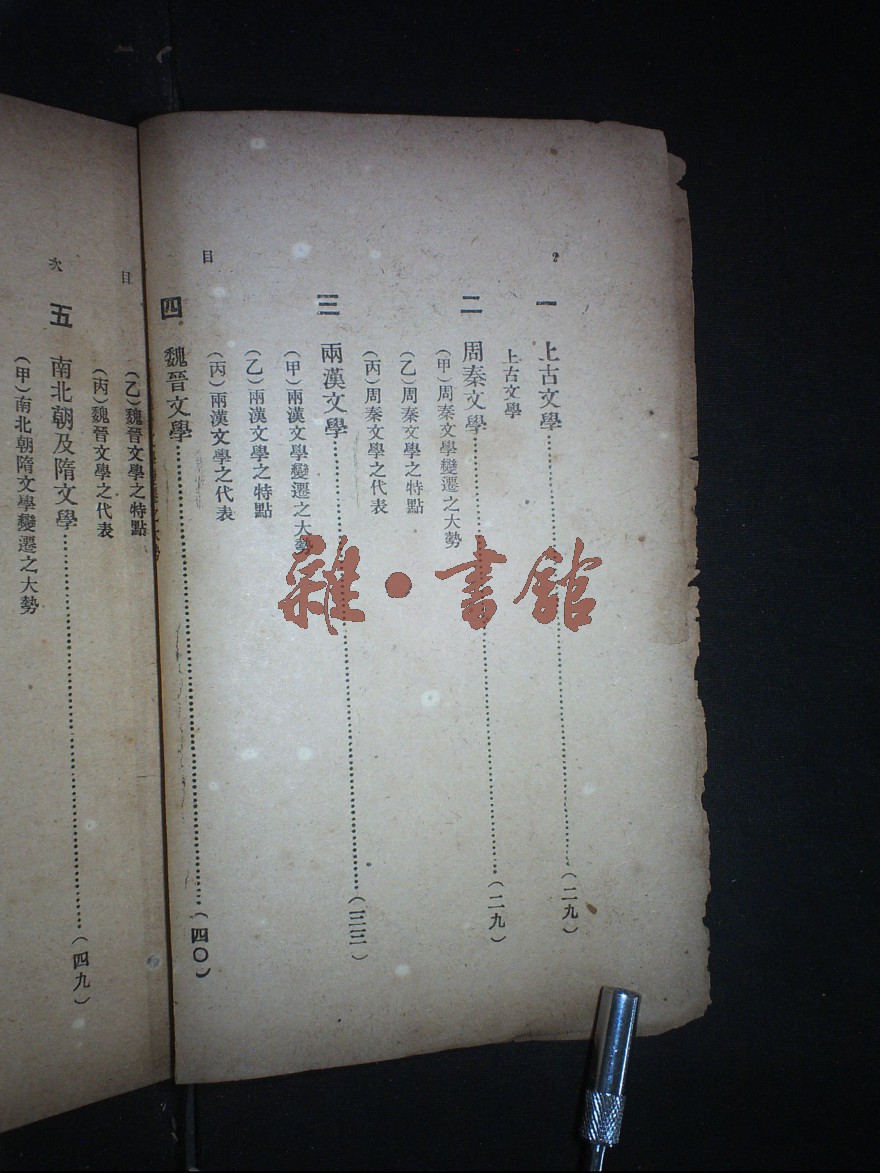 2
一 上古文學……(二九)
上古文學
二 周秦文學……(二九)
(甲)周秦文學變遷之大勢
(乙)周秦文學之特點
(丙)周秦文學之代表
三 兩漢文學……(三三)
(甲)兩漢文學變遷之大勢
(乙)兩漢文學之特點
(丙)兩漢文學之代表
目
四 魏晉文學……(四〇)
之大勢
目
(乙)魏晉文學之特點
(丙)魏晉文學之代表
次
五 南北朝及隋文學……(四九)
(甲)南北朝隋文學變遷之大勢
雜·書館